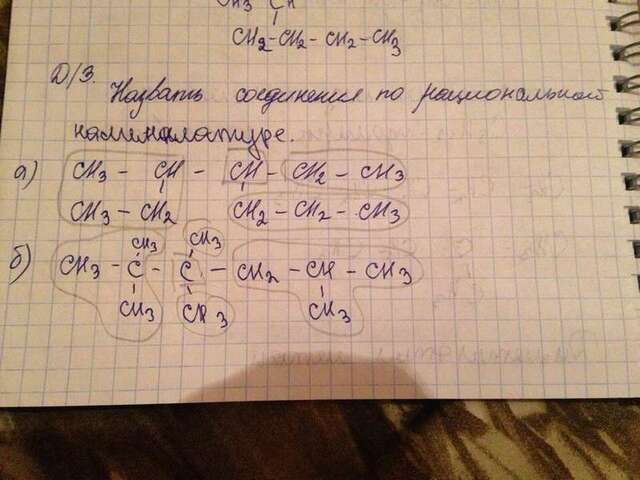 CH3 CH
CH2-CH2-CH2-CH3
Д/З.
Назвать соединения по рациональной
наменклатуре.
а) CH3 - CH - CH - CH2 - CH3
CH3-CH2 CH2-CH2-CH3
CH3 CH3
б) CH3 - C - C - CH2 - CH - CH3
CH3 CH3 CH3